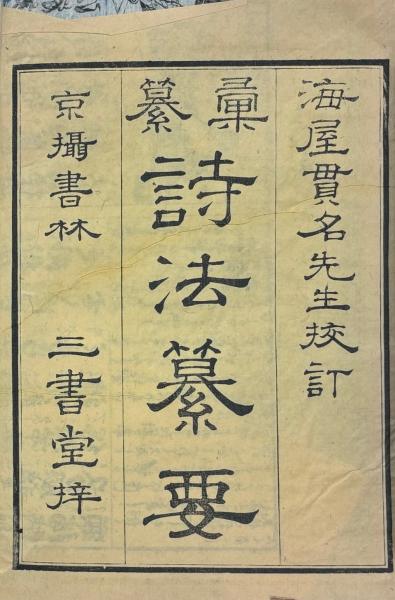 海屋貫名先生挍訂
彙纂
詩法纂要
京攝書林 三書堂梓